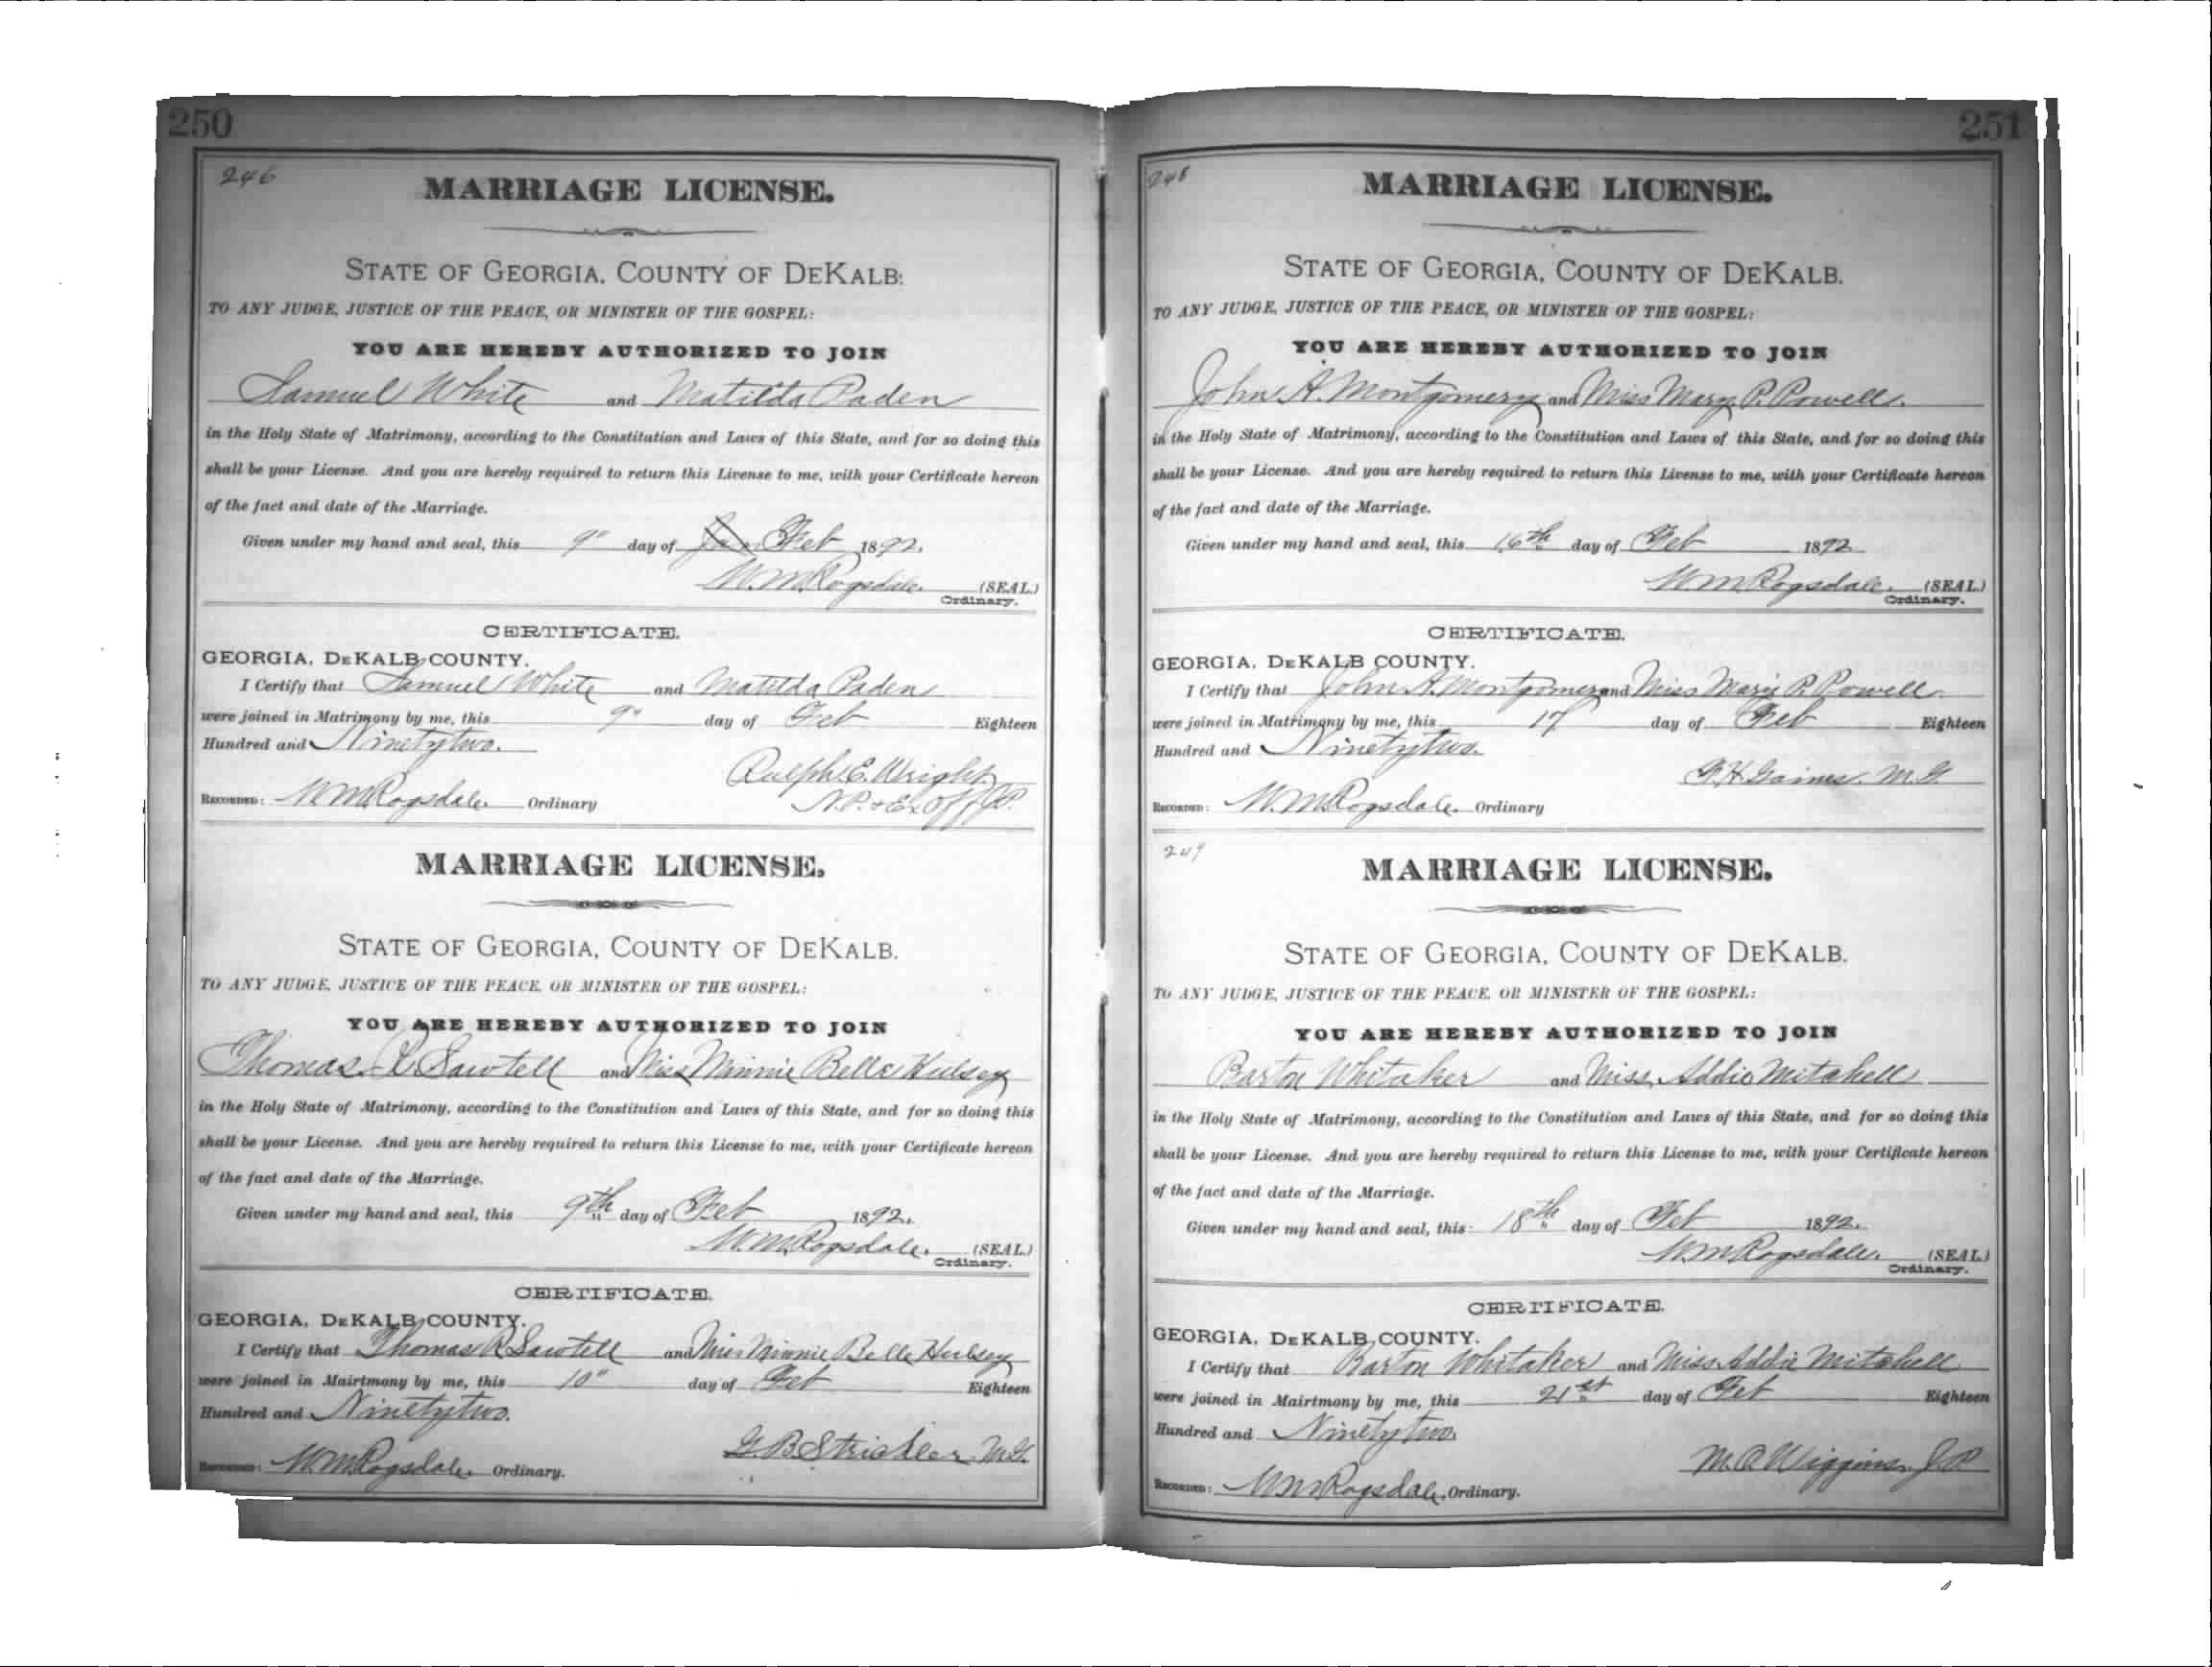 250
246
MARRIAGE LICENSE.
STATE OF GEORGIA, COUNTY OF DEKALB:
TO ANY JUDGE, JUSTICE OF THE PEACE, OR MINISTER OF THE GOSPEL:
YOU ARE HEREBY AUTHORIZED TO JOIN
Samuel White and Matilda Paden
in the Holy State of Matrimony, according to the Constitution and Laws of this State, and for so doing this
shall be your License. And you are hereby required to return this License to me, with your Certificate hereon
of the fact and date of the Marriage.
Given under my hand and seal, this 9" day of Jan Feb 1892.
W. M. Ragsdale. (SEAL)
Ordinary.
CERTIFICATE.
GEORGIA, DEKALB COUNTY.
I Certify that Samuel White and Matilda Paden
were joined in Matrimony by me, this 9" day of Feb Eighteen
Hundred and Ninety two.
Ralph E. Wright
RECORDED: W M Ragsdale. Ordinary N.P. + Ex Off J.P.
MARRIAGE LICENSE.
STATE OF GEORGIA, COUNTY OF DEKALB.
TO ANY JUDGE, JUSTICE OF THE PEACE, OR MINISTER OF THE GOSPEL:
YOU ARE HEREBY AUTHORIZED TO JOIN
Thomas R Sawtell and Miss Minnie Belle Hulsey
in the Holy State of Matrimony, according to the Constitution and Laws of this State, and for so doing this
shall be your License. And you are hereby required to return this License to me, with your Certificate hereon
of the fact and date of the Marriage.
Given under my hand and seal, this 9th day of Feb 1892.
W. M. Ragsdale. (SEAL)
Ordinary.
CERTIFICATE.
GEORGIA, DEKALB COUNTY.
I Certify that Thomas R Sawtell and Miss Minnie Belle Hulsey
were joined in Mairtmony by me, this 10" day of Feb Eighteen
Hundred and Ninety two.
G. B. Strickler M.G.
RECORDED: W M Ragsdale. Ordinary.
251
248
MARRIAGE LICENSE.
STATE OF GEORGIA, COUNTY OF DEKALB.
TO ANY JUDGE, JUSTICE OF THE PEACE, OR MINISTER OF THE GOSPEL:
YOU ARE HEREBY AUTHORIZED TO JOIN
John A. Montgomery and Miss Mary P. Powell.
in the Holy State of Matrimony, according to the Constitution and Laws of this State, and for so doing this
shall be your License. And you are hereby required to return this License to me, with your Certificate hereon
of the fact and date of the Marriage.
Given under my hand and seal, this 16th day of Feb 1892
W M Ragsdale. (SEAL)
Ordinary.
CERTIFICATE.
GEORGIA, DEKALB COUNTY.
I Certify that John A. Montgomery and Miss Marie P. Powell.
were joined in Matrimony by me, this 17 day of Feb Eighteen
Hundred and Ninety two.
F. H. Gaines. M.G.
RECORDED: W. M. Ragsdale. Ordinary
249
MARRIAGE LICENSE.
STATE OF GEORGIA, COUNTY OF DEKALB.
TO ANY JUDGE, JUSTICE OF THE PEACE, OR MINISTER OF THE GOSPEL:
YOU ARE HEREBY AUTHORIZED TO JOIN
Barton Whitaker and Miss Addie Mitchell
in the Holy State of Matrimony, according to the Constitution and Laws of this State, and for so doing this
shall be your License. And you are hereby required to return this License to me, with your Certificate hereon
of the fact and date of the Marriage.
Given under my hand and seal, this 18th day of Feb 1892.
W. M Ragsdale. (SEAL)
Ordinary.
CERTIFICATE.
GEORGIA, DEKALB COUNTY.
I Certify that Barton Whitaker and Miss Addie Mitchell
were joined in Mairtmony by me, this 21st day of Feb Eighteen
Hundred and Ninety two.
M. A. Wiggins. J.P.
RECORDED: W M Ragsdale. Ordinary.